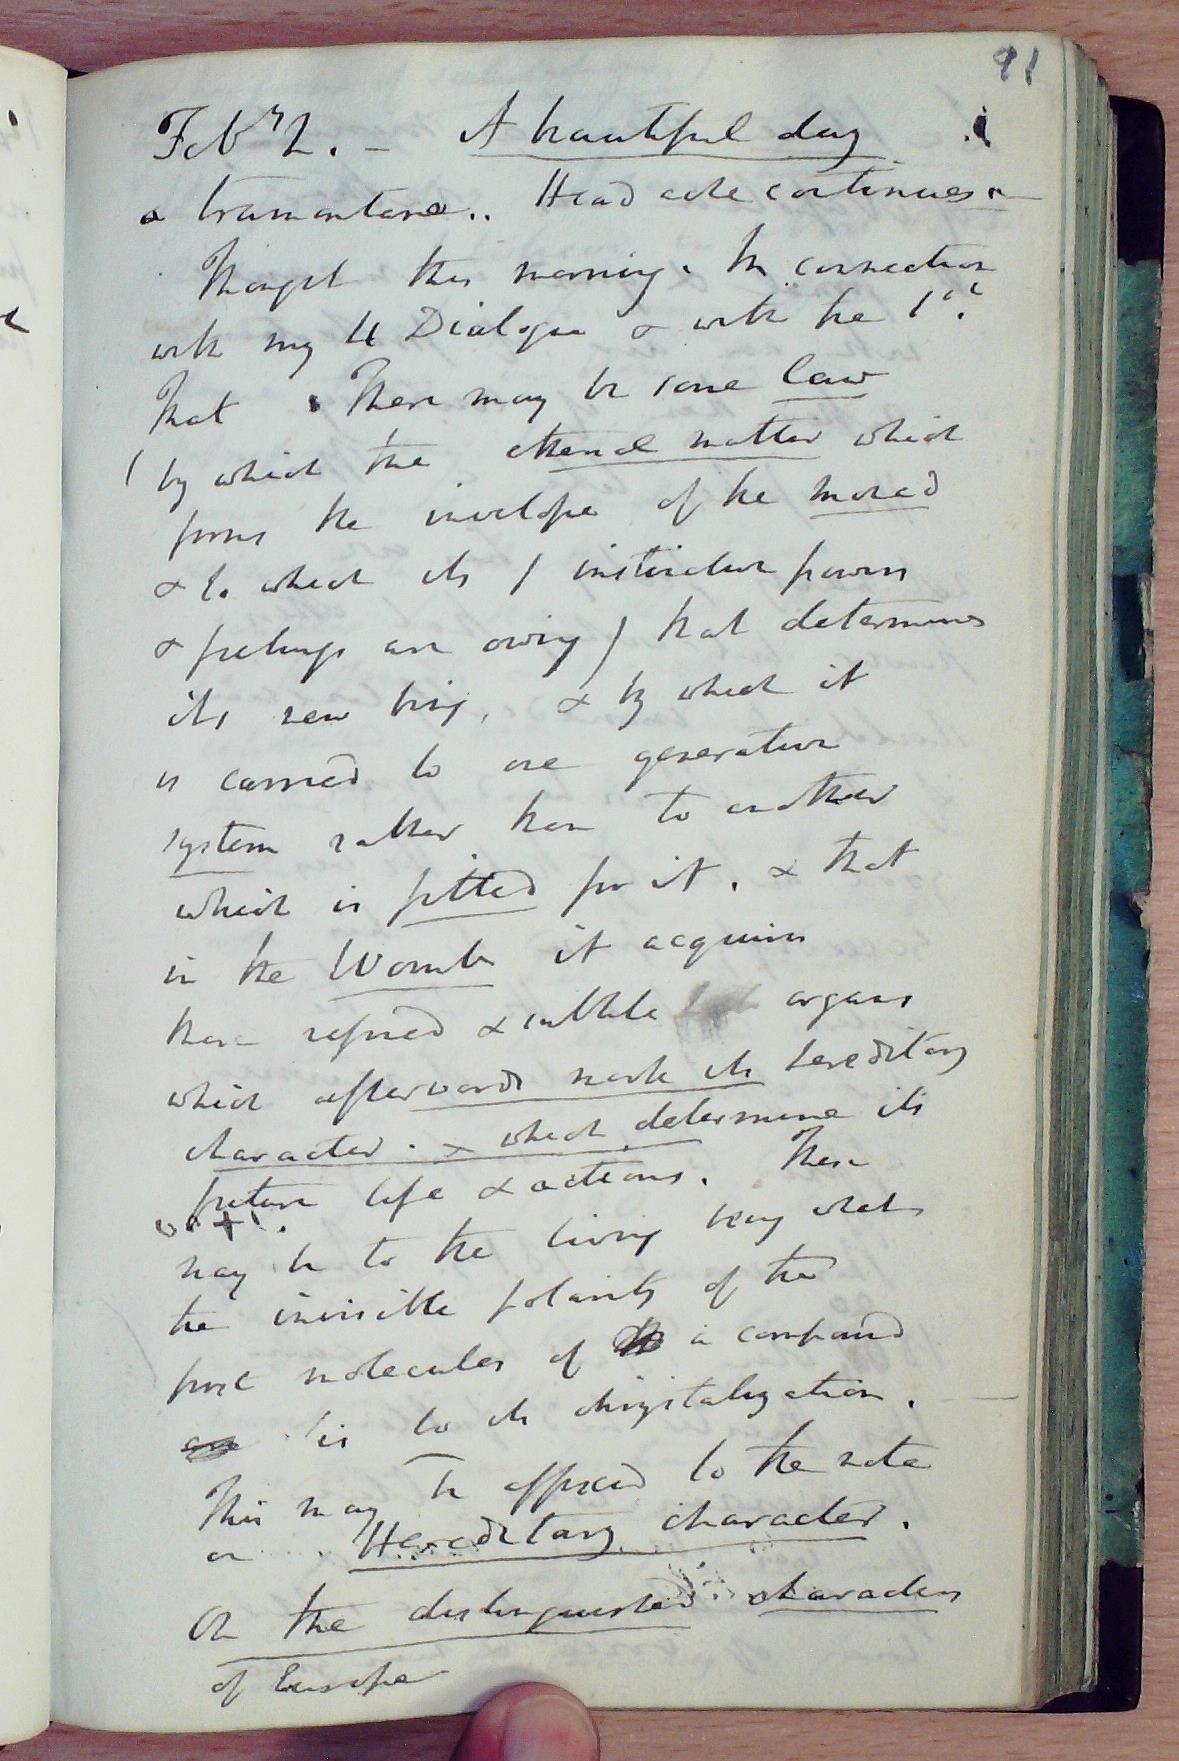 91
Feb.ry 2. – A beautiful day
a tramontane.. Head ache continues
Thought this morning. In connection
with my 4 Dialogue & with the 1st.
That There may be some law
by which the etherial matter which
forms the envelope of the monad
& to which its / instinctive powers
& feelings are owing) that determines
its new being, & by which it
is carried to one generative
system rather than to another
which is fitted for it. & that
in the Womb it acquires
these refined & subtile organs
which afterwards mark its hereditary
character. & which determine its
future life & actions. These
may be to the living being what
the invisible polarity of the
first molecules of a compound
is to its chrystalization.
This may be affixed to the note
on Hereditary character.
On the distinguished characters
of Europe